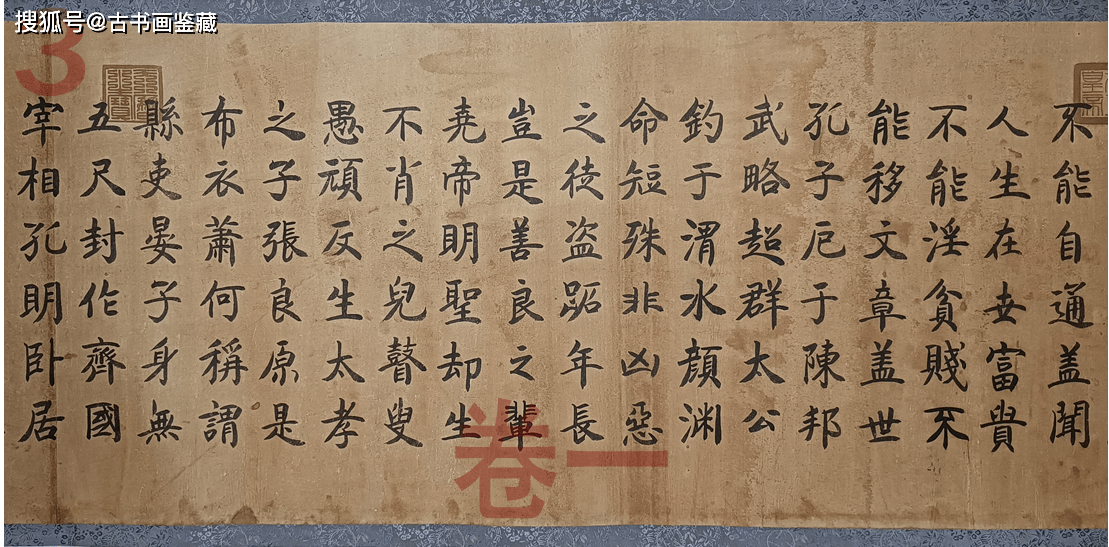 搜狐号@古书画鉴藏
3
不能自通盖聞
人生在世富貴
不能淫貧賤不
能移文章盖世
孔子厄于陳邦
武略超群太公
釣于渭水顔渊
命短殊非凶惡
之徒盗跖年長
豈是善良之輩
堯帝明聖却生
不肖之兒瞽叟
愚頑反生太孝
之子張良原是
布衣蕭何稱謂
縣吏晏子身無
五尺封作齊國
宰相孔明卧居
卷一